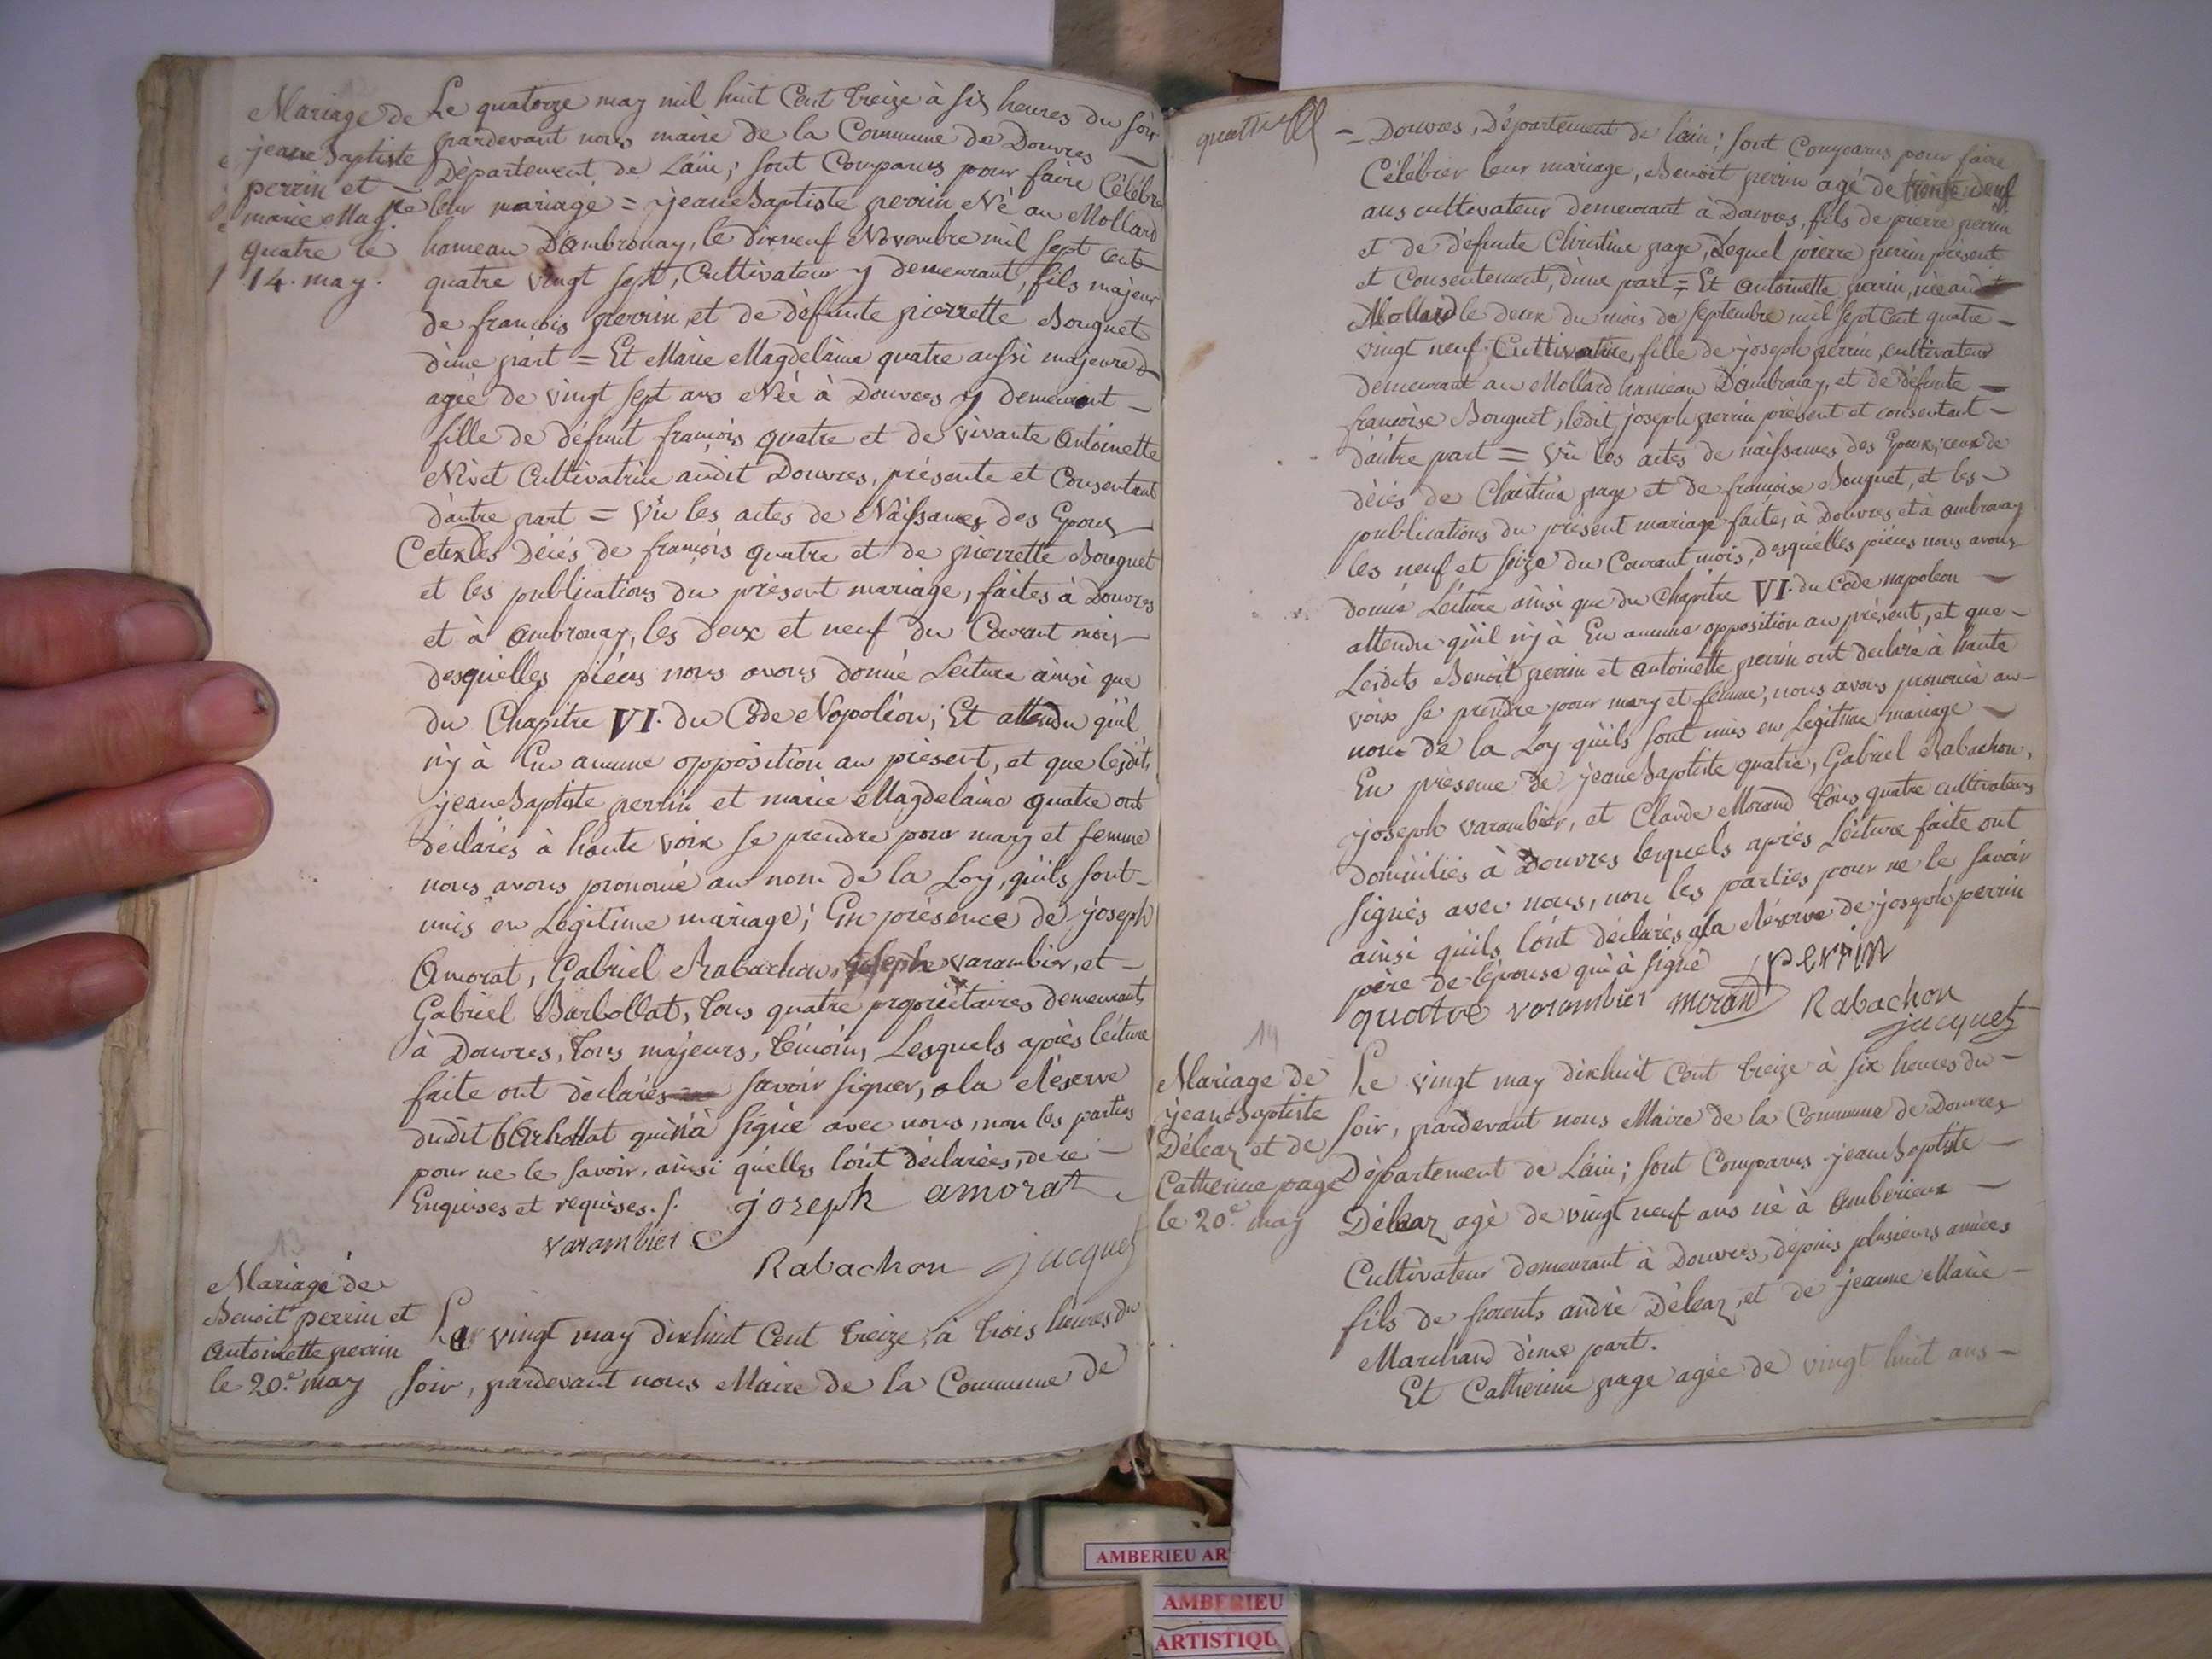 Mariage de
jean Baptiste
perrin et
marie Mag.ne
quatre le
14. may.
Le quatorze may mil huit Cent treize à six heures du soir
pardevant nous maire de la Commune de Douvres
Département de L'ain; sont Comparus pour faire Célébrer
leur mariage = jean Baptiste perrin Né au Mollard
hameau D'ambronay, le dixneuf Novembre mil sept cent
quatre vingt sept, Cultivateur y demeurant, fils majeur
de francois perrin, et de défunte pierrette Bouguet
d'une part = Et Marie Magdelaine quatre aussi majeure
agée de vingt sept ans Née à Douvres y demeurant
fille de défunt francois quatre et de vivante Antoinette
Nivet Cultivatrice audit Douvres, présente et Consentant
d'autre part = Vu les actes de Naissances des Epoux
Ceux les Décés de francois quatre et de pierrette Bouguet
et les publications du présent mariage, faites à Douvres
et à ambronay, les deux et neuf du Courant mois
desquelles piéces nous avons donné Lecture ainsi que
du Chapitre VI. du Code Napoléon; Et attendu qu'il
n'y à Eu aucune opposition au présent, et que lesdits
jean Baptiste perrin et marie Magdelaine quatre ont
déclarés à haute voix se prendre pour mary et femme
nous avons prononcé au nom de la Loy, qu'ils sont
unis en Legitime mariage; En présence de joseph
Amorat, Gabriel Rabachon, joseph varambier, et
Gabriel Barbollat, tous quatre propriétaires demeurants
à Douvres, tous majeurs, témoins, Lesquels après lecture
faite ont déclarés savoir signer, a la Réserve
dudit barbollat qui n'à signé avec nous, non les parties
pour ne le savoir, ainsi qu'elles l'ont déclarées, de ce
Enquises et requises. /.
joseph amorat
varambier
Rabachon jacquet
13
Mariage de
Benoit perrin et
Antoinette perrin
le 20.e may
Le vingt may dixhuit Cent treize, à trois heures du
soir, pardevant nous Maire de la Commune de
quatre
= Douvres, Département de l'ain; sont Comparus pour faire
Célébrer leur mariage, Benoit perrin agé de trente neuf
ans cultivateur demeurant à Douvres, fils de pierre perrin
et de défunte Christine page, Lequel pierre perrin présent
et Consentement, d'une part = Et antoinette perrin, née au
Mollard le deux du mois de septembre mil sept Cent quatre
vingt neuf Cultivatrice, fille de joseph perrin, cultivateur
demeurant au Mollard hameau D'ambronay, et de défunte
francoise Bouguet, ledit joseph perrin présent et consentant
d'autre part = Vu les actes de naissances des Epoux, ceux de
décés de Christine page et de francoise Bouguet, et les
publications du présent mariage faites à Douvres et à ambronay
les neuf et seize du Courant mois, desquelles piéces nous avons
donné Lecture ainsi que du Chapitre VI. du Code napoleon
attendu qu'il n'y à Eu aucune opposition au présent, et que
Lesdits Benoit perrin et antoinette perrin ont declaré à haute
voix se prendre pour mary et femme, nous avons prononcé au
nom de la Loy qu'ils sont unis en Legitime mariage
En présence de jean Baptiste quatre, Gabriel Rabachon,
joseph varambier, et Claude Morand tous quatre cultivateurs
domiciliés à Douvres lesquels après Lecture faite ont
signés avec nous, non les parties pour ne le savoir
ainsi qu'ils l'ont déclarés, a la Réserve de joseph perrin
père de l'épouse qui à signé perrin
quatre varambier morand Rabachon
jacquet
14
Mariage de
jean Baptiste
Déléaz et de
Catherine page
le 20.e may
Le vingt may dixhuit Cent treize à six heures du
soir, pardevant nous Maire de la Commune de Douvres
Département de L'ain; sont Comparus jean Baptiste
Déléaz agé de vingt neuf ans né à Amberieux
Cultivateur demeurant à Douvres, depuis plusieurs années
fils de andré Déléaz, et de jeanne Marie
Marchand d'une part.
Et Catherine page agée de vingt huit ans
AMBERIEU AR
AMBERIEU
ARTISTIQU